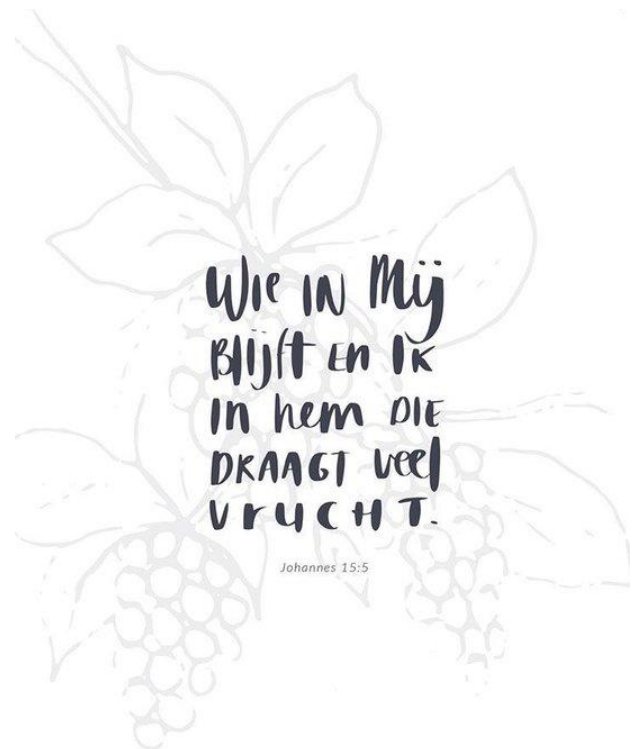 Wie in Mij
Blijft en Ik
in hem die
draagt veel
vrucht.
Johannes 15:5